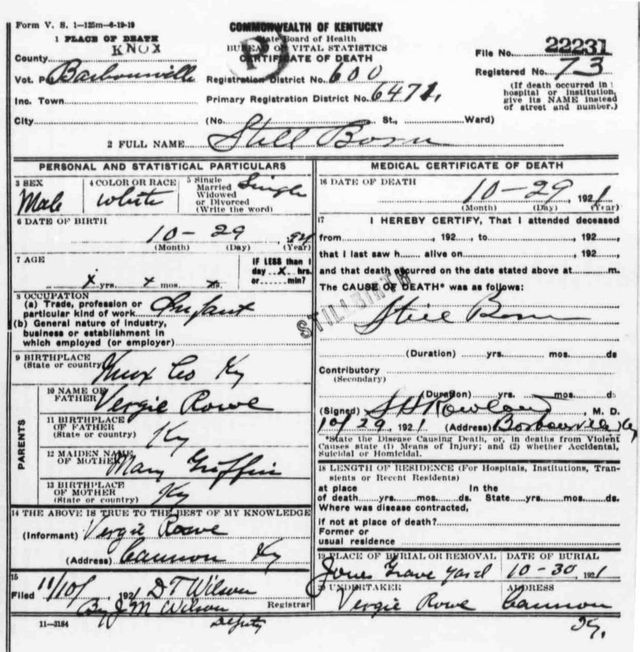 Form V. S. 1—125m—6-19-19
COMMONWEALTH OF KENTUCKY
State Board of Health
BUREAU OF VITAL STATISTICS
CERTIFICATE OF DEATH
1 PLACE OF DEATH
County KNOX
File No. 22231
Vot. P Barbourville
Registration District No. 600
Registered No. 73
Inc. Town
Primary Registration District No. 6471
(If death occurred in a hospital or institution, give its NAME instead of street and number.)
City (No. St., Ward)
2 FULL NAME Still Born
PERSONAL AND STATISTICAL PARTICULARS
3 SEX Male
4 COLOR OR RACE White
5 Single Married Widowed or Divorced (Write the word) Single
6 DATE OF BIRTH
10-29
(Month) (Day) (Year)
7 AGE
x yrs. x mos. x ds.
IF LESS than 1 day x hrs. or min.?
8 OCCUPATION
(a) Trade, profession or particular kind of work Infant
(b) General nature of industry, business or establishment in which employed (or employer)
9 BIRTHPLACE
(State or country) Knox Co Ky
PARENTS
10 NAME OF FATHER Vergie Rowe
11 BIRTHPLACE OF FATHER (State or country) Ky
12 MAIDEN NAME OF MOTHER Mary Griffin
13 BIRTHPLACE OF MOTHER (State or country) Ky
14 THE ABOVE IS TRUE TO THE BEST OF MY KNOWLEDGE
(Informant) Vergie Rowe
(Address) Cannon Ky
15
Filed 11/10/ 1921 D T Wilson
By J M Wilson Registrar
Deputy
11—3184
MEDICAL CERTIFICATE OF DEATH
16 DATE OF DEATH
10-29, 1921
(Month) (Day) (Year)
17 I HEREBY CERTIFY, That I attended deceased
from , 192 , to , 192 ,
that I last saw h alive on , 192 ,
and that death occurred on the date stated above at m.
The CAUSE OF DEATH* was as follows:
STILLBIRTH
Still Born
(Duration) yrs. mos. ds
Contributory
(Secondary)
(Duration) yrs. mos. ds.
(Signed) , M. D.
10/29 1921 (Address) Barbourville Ky
*State the Disease Causing Death, or, in deaths from Violent Causes state (1) Means of Injury; and (2) whether Accidental, Suicidal or Homicidal.
18 LENGTH OF RESIDENCE (For Hospitals, Institutions, Transients or Recent Residents)
at place of death yrs. mos. ds. In the State yrs. mos. ds.
Where was disease contracted,
if not at place of death?
Former or
usual residence
19 PLACE OF BURIAL OR REMOVAL Jones Grave yard
DATE OF BURIAL 10-30, 1921
20 UNDERTAKER Vergie Rowe
ADDRESS Cannon
Ky.